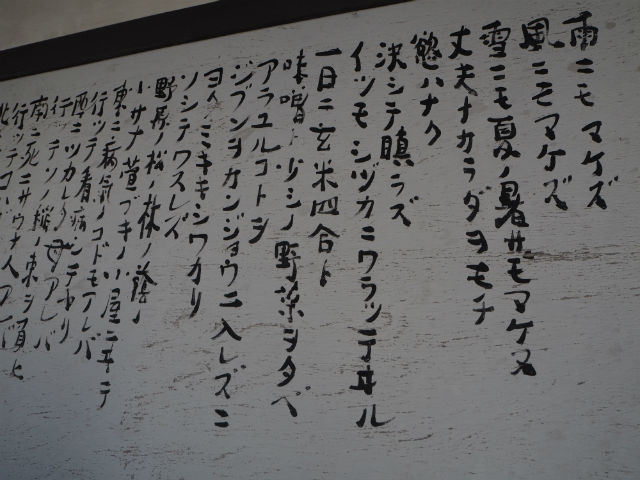 雨ニモマケズ
風ニモマケズ
雪ニモ夏ノ暑サモマケヌ
丈夫ナカラダヲモチ
慾ハナク
決シテ瞋ラズ
イツモシヅカニワラッテヰル
一日ニ玄米四合ト
味噌ト少シノ野菜ヲタベ
アラユルコトヲ
ジブンヲカンジョウニ入レズニ
ヨクミキキシワカリ
ソシテワスレズ
野原ノ松ノ林ノ蔭ノ
小サナ萱ブキノ小屋ニヰテ
東ニ病気ノコドモアレバ
行ッテ看病シテヤリ
西ニツカレタ母アレバ
行ッテソノ稲ノ束ヲ負ヒ
南ニ死ニサウナ人アレバ
行ッテコハ
北ニ